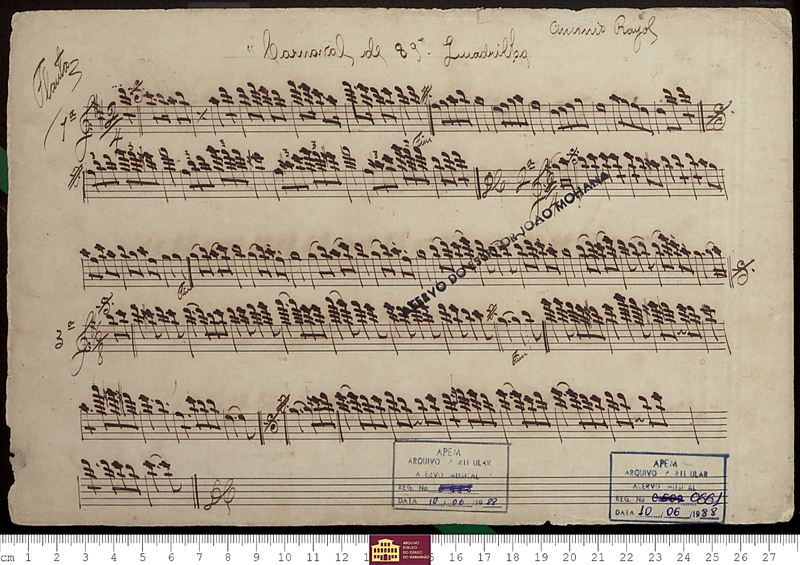 Antonio Rayol
"Carnaval de 89". Quadrilha
Flauta
1ª
Fim
D.C.
2ª
ACERVO DO
JOÃO MOHANA
Fim
3ª
Fim
D.C.
APEM
ARQUIVO
ACERVO MUSICAL
REG. No.
DATA 10 / 06 / 1988
APEM
ARQUIVO
ACERVO MUSICAL
REG. No. 0661
DATA 10 / 06 / 1988
cm 1 2 3 4 5 6 7 8 9 10 11 12 13 16 17 18 19 20 21 22 23 24 25 26 27
ARQUIVO
PÚBLICO
DO ESTADO
DO MARANHÃO